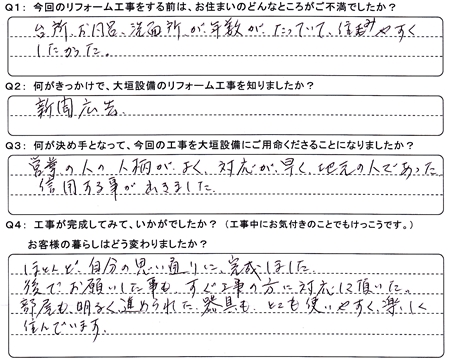 Q1: 今回のリフォーム工事をする前は、お住まいのどんなところがご不満でしたか？
台所、お風呂、洗面所が年数がたっていて、住みやすく
したかった。
Q2: 何がきっかけで、大垣設備のリフォーム工事を知りましたか？
新聞広告。
Q3: 何が決め手となって、今回の工事を大垣設備にご用命くださることになりましたか？
営業の人の人柄がよく、対応が早く、地元の人であった
信用する事が出きました
Q4: 工事が完成してみて、いかがでしたか？（工事中にお気付きのことでもけっこうです。）
お客様の暮らしはどう変わりましたか？
ほとんど、自分の思い通りに、完成しました
後でお願いした事も、すぐ工事の方に対応して頂いた。
部屋も、明るく進められた器具も、とても使いやすく、楽しく
住んでいます。